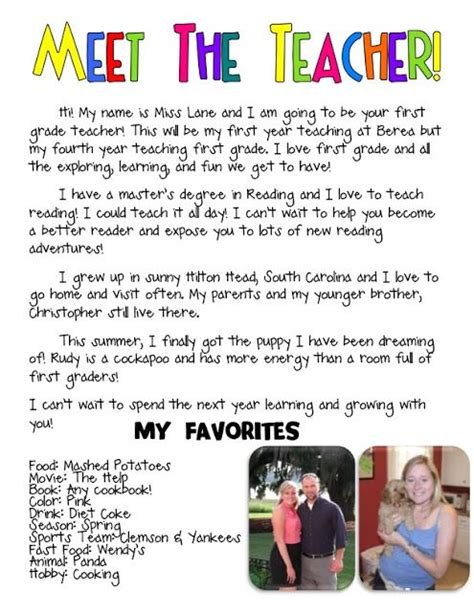 MEET THE TEACHER!
Hi! My name is Miss Lane and I am going to be your first
grade teacher! This will be my first year teaching at Berea but
my fourth year teaching first grade. I love first grade and all
the exploring, learning, and fun we get to have!
I have a master's degree in Reading and I love to teach
reading! I could teach it all day! I can't wait to help you become
a better reader and expose you to lots of new reading
adventures!
I grew up in sunny Hilton Head, South Carolina and I love to
go home and visit often. My parents and my younger brother,
Christopher still live there.
This summer, I finally got the puppy I have been dreaming
of! Rudy is a cockapoo and has more energy than a room full of
first graders!
I can't wait to spend the next year learning and growing with
you!
MY FAVORITES
Food: Mashed Potatoes
Movie: The Help
Book: Any cookbook!
Color: Pink
Drink: Diet Coke
Season: Spring
Sports Team: Clemson & Yankees
Fast Food: Wendy's
Animal: Panda
Hobby: Cooking